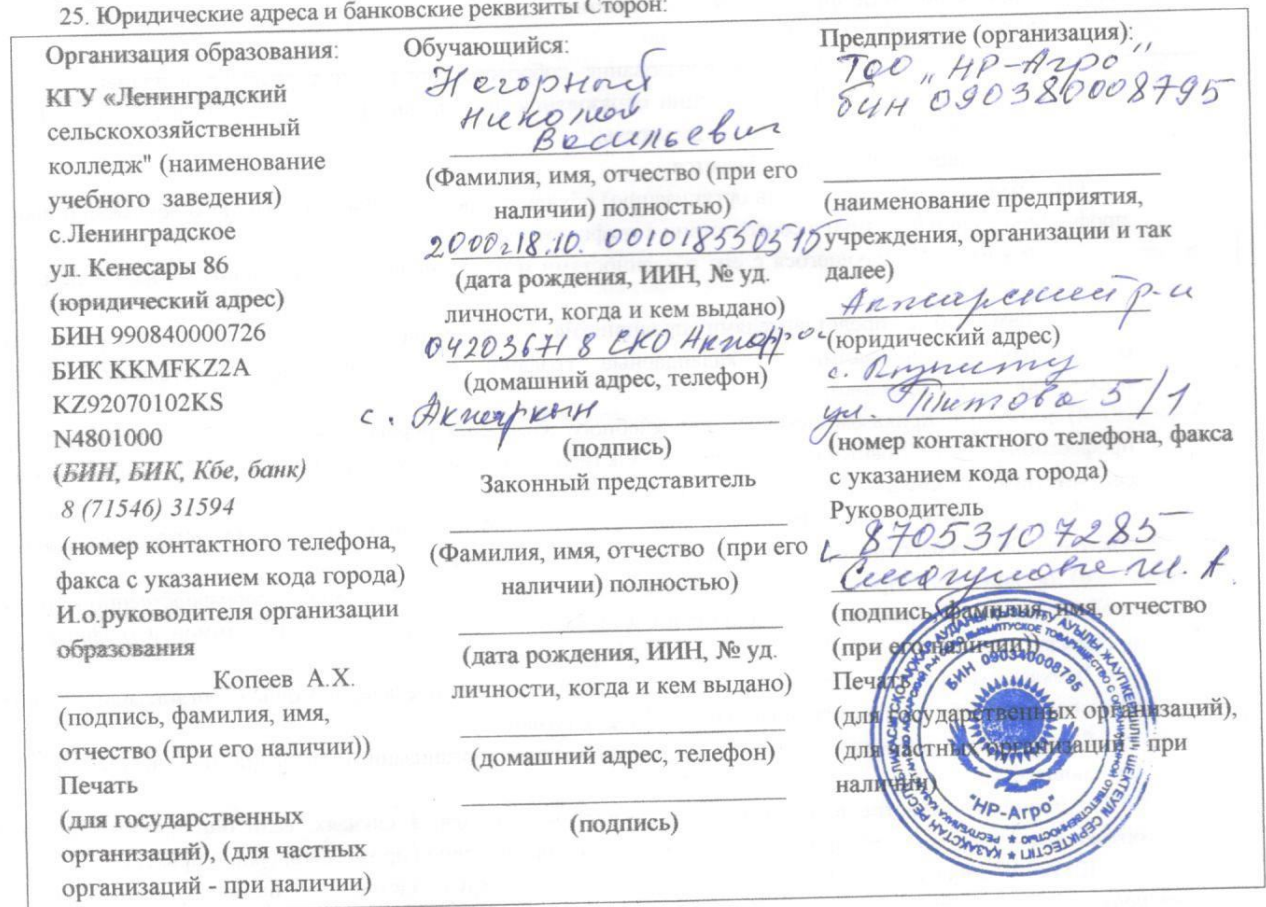 25. Юридические адреса и банковские реквизиты Сторон:
Организация образования:
КГУ «Ленинградский
сельскохозяйственный
колледж" (наименование
учебного заведения)
с.Ленинградское
ул. Кенесары 86
(юридический адрес)
БИН 990840000726
БИК KKMFKZ2A
KZ92070102KS
N4801000
(БИН, БИК, Кбе, банк)
8 (71546) 31594
(номер контактного телефона,
факса с указанием кода города)
И.о.руководителя организации
образования
____________Копеев А.Х.
(подпись, фамилия, имя,
отчество (при его наличии))
Печать
(для государственных
организаций), (для частных
организаций - при наличии)
Обучающийся:
Нагорный
Николай
Васильевич
(Фамилия, имя, отчество (при его
наличии) полностью)
2000г.18.10. 001018550515
(дата рождения, ИИН, № уд.
личности, когда и кем выдано)
042036718 СКО
(домашний адрес, телефон)
с. Акжаркын
(подпись)
Законный представитель
(Фамилия, имя, отчество (при его
наличии) полностью)
(дата рождения, ИИН, № уд.
личности, когда и кем выдано)
(домашний адрес, телефон)
(подпись)
Предприятие (организация):
ТОО "НР-Агро"
бин 090380008795
(наименование предприятия,
учреждения, организации и так
далее)
Акжарский р-н
(юридический адрес)
с.
ул. Титова 5/1
(номер контактного телефона, факса
с указанием кода города)
Руководитель
87053107285
(подпись, фамилия, имя, отчество
(при его наличии))
Печать
(для государственных организаций),
(для частных организаций - при
наличии)
БИН 090340008795
"НР-Агро"